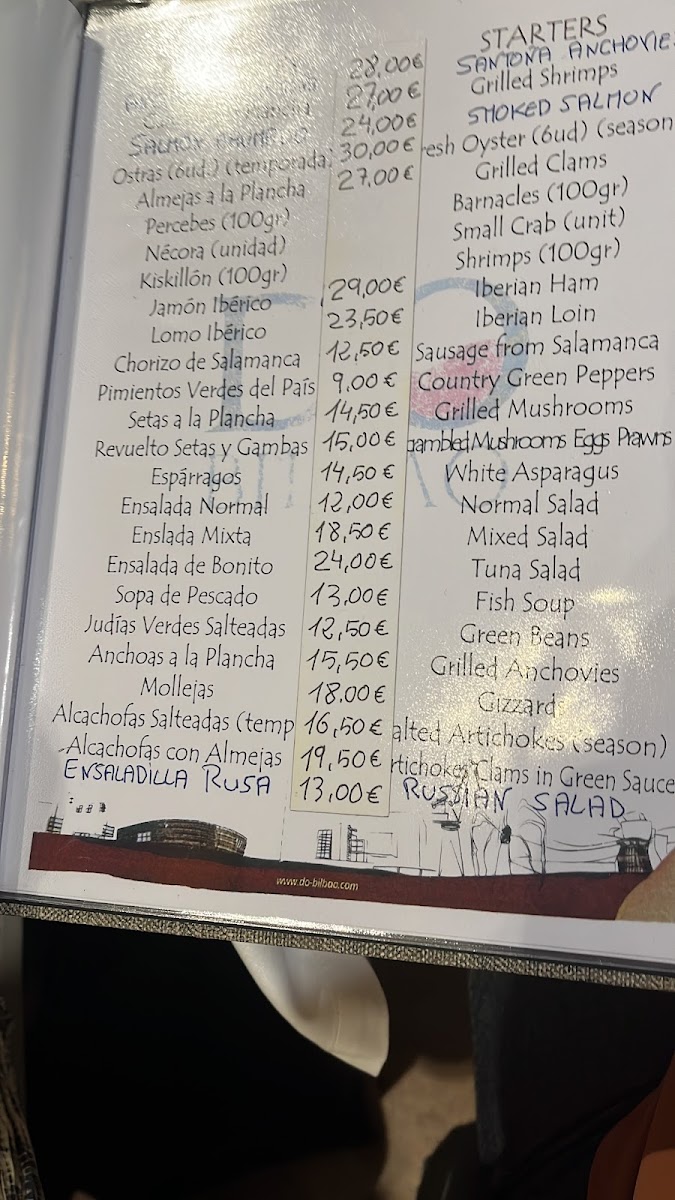 STARTERS
28,00€ SANTOÑA ANCHOVIE
27,00€ Grilled Shrimps
SALMON AHUMADO 24,00€ SMOKED SALMON
Ostras (6ud.) (temporada) 30,00€ resh Oyster (6ud) (season
Almejas a la Plancha 27,00€ Grilled Clams
Percebes (100gr) Barnacles (100gr)
Nécora (unidad) Small Crab (unit)
Kiskillón (100gr) Shrimps (100gr)
Jamón Ibérico 29,00€ Iberian Ham
Lomo Ibérico 23,50€ Iberian Loin
Chorizo de Salamanca 12,50€ Sausage from Salamanca
Pimientos Verdes del País 9,00€ Country Green Peppers
Setas a la Plancha 14,50€ Grilled Mushrooms
Revuelto Setas y Gambas 15,00€ ambled Mushrooms Eggs Prawns
Espárragos 14,50€ White Asparagus
Ensalada Normal 12,00€ Normal Salad
Enslada Mixta 18,50€ Mixed Salad
Ensalada de Bonito 24,00€ Tuna Salad
Sopa de Pescado 13,00€ Fish Soup
Judías Verdes Salteadas 12,50€ Green Beans
Anchoas a la Plancha 15,50€ Grilled Anchovies
Mollejas 18,00€ Gizzards
Alcachofas Salteadas (temp 16,50€ alted Artichokes (season)
Alcachofas con Almejas 19,50€ rtichokes Clams in Green Sauce
ENSALADILLA RUSA 13,00€ RUSSIAN SALAD
www.do-bilbao.com